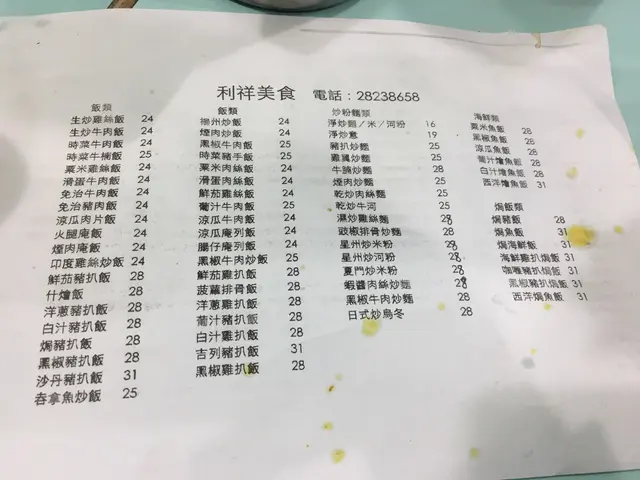 利祥美食 電話：28238658
飯類
生炒雞絲飯 24
生炒牛肉飯 24
時菜牛肉飯 24
時菜牛腩飯 25
粟米雞絲飯 24
滑蛋牛肉飯 24
免治牛肉飯 24
免治豬肉飯 24
涼瓜肉片飯 24
火腿庵飯 24
煙肉庵飯 24
印度雞絲炒飯 24
鮮茄豬扒飯 28
什燴飯 28
洋蔥豬扒飯 28
白汁豬扒飯 28
焗豬扒飯 28
黑椒豬扒飯 28
沙丹豬扒飯 31
吞拿魚炒飯 25
飯類
揚州炒飯 24
煙肉炒飯 24
黑椒牛肉飯 25
時菜豬手飯 25
粟米肉絲飯 24
滑蛋肉絲飯 24
鮮茄雞絲飯 24
葡汁牛肉飯 25
涼瓜牛肉飯 24
涼瓜庵列飯 24
腸仔庵列飯 24
黑椒牛肉炒飯 25
鮮茄雞扒飯 28
菠蘿排骨飯 28
洋蔥雞扒飯 28
葡汁豬扒飯 28
白汁雞扒飯 28
吉列豬扒飯 31
黑椒雞扒飯 28
炒粉麵類
淨炒麵／米／河粉 16
淨炒意 19
豬扒炒麵 25
雞翼炒麵 25
牛腩炒麵 28
煙肉炒麵 25
乾炒肉絲麵 25
乾炒牛河 25
濕炒雞絲麵 28
豉椒排骨炒麵 28
星州炒米粉 28
星州炒河粉 28
夏門炒米粉 28
蝦醬肉絲炒麵 28
黑椒牛肉炒麵 28
日式炒烏冬 28
海鮮類
粟米魚飯 28
黑椒魚飯 28
涼瓜魚飯 28
葡汁燴魚飯 28
白汁燴魚飯 28
西洋燴魚飯 31
焗飯類
焗豬飯 28
焗魚飯 31
焗海鮮飯 31
海鮮雞扒焗飯 31
咖喱豬扒焗飯 31
黑椒豬扒焗飯 31
西洋焗魚飯 31